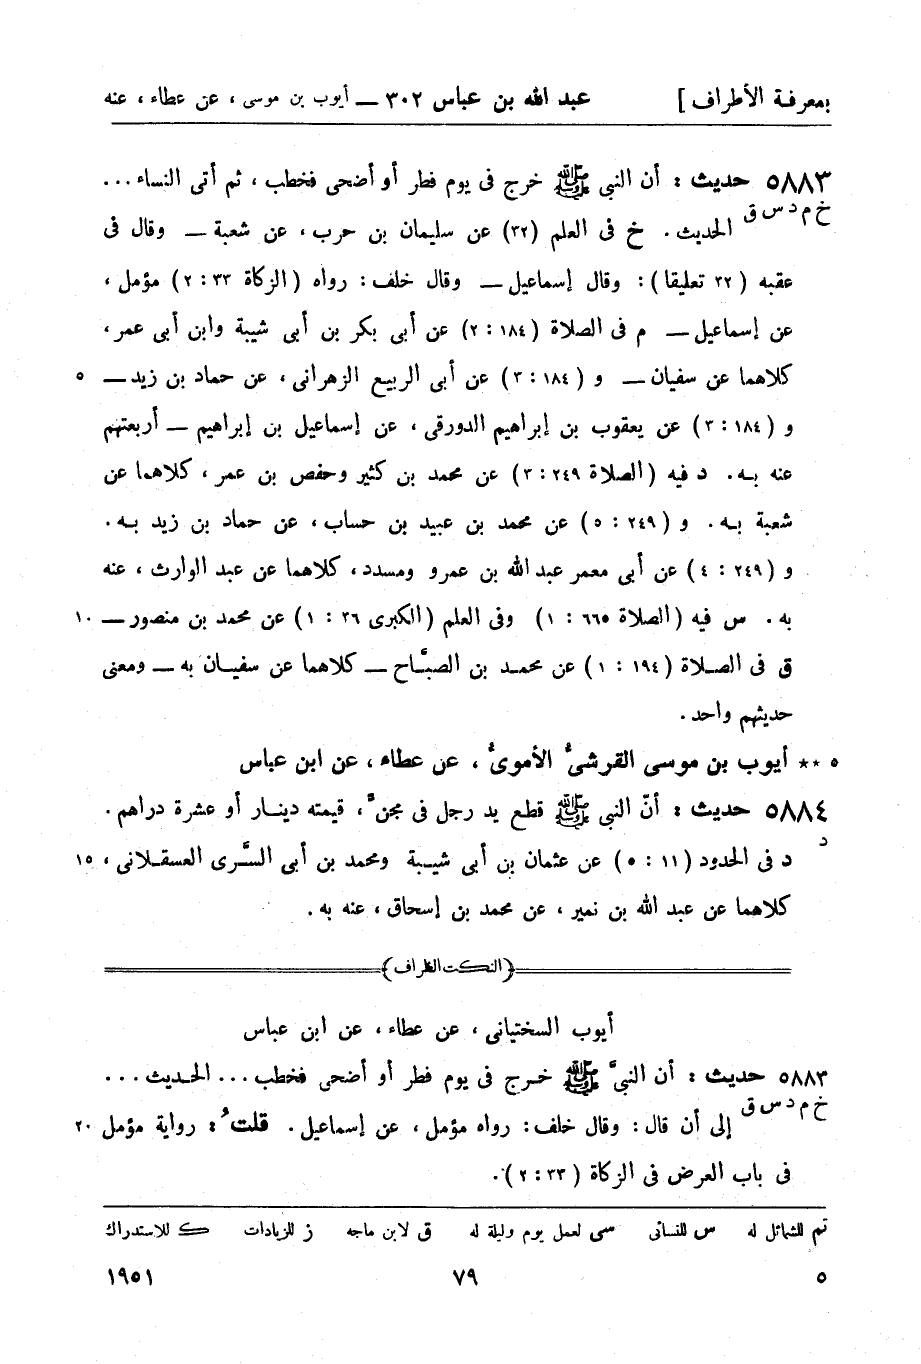 بمعرفة الأطراف] عبد الله بن عباس ٣٠٢ — أيوب بن موسى ، عن عطاء ، عنه
٥٨٨٣ حديث : أن النبي ﷺ خرج فى يوم فطر أو أضحى فخطب ، ثم أتى النساء ...
خ م د س ق
الحديث . خ فى العلم (٣٢) عن سليمان بن حرب ، عن شعبة — وقال فى
عقبه (٣٢ تعليقا) : وقال إسماعيل — وقال خلف : رواه (الزكاة ٣٣ : ٢) مؤمل ،
عن إسماعيل — م فى الصلاة (١٨٤ : ٢) عن أبى بكر بن أبى شيبة وابن أبى عمر ،
كلاهما عن سفيان — و (١٨٤ : ٣) عن أبى الربيع الزهرانى ، عن حماد بن زيد — ٥
و (١٨٤ : ٣) عن يعقوب بن إبراهيم الدورقى ، عن إسماعيل بن إبراهيم — أربعتهم
عنه بـه . د فيه (الصلاة ٢٤٩ : ٣) عن محمد بن كثير وحفص بن عمر ، كلاهما عن
شعبة بـه . و (٢٤٩ : ٥) عن محمد بن عبيد بن حساب ، عن حماد بن زيد بـه .
و (٢٤٩ : ٤) عن أبى معمر عبد الله بن عمرو ومسدد ، كلاهما عن عبد الوارث ، عنه
به . س فيه (الصلاة ٦٦٥ : ١) وفى العلم (الكبرى ٣٦ : ١) عن محمد بن منصور — ١٠
ق فى الصلاة (١٩٤ : ١) عن محمد بن الصبَّاح — كلاهما عن سفيان به — ومعنى
حديثهم واحد .
٥ ** أيوب بن موسى القرشىُّ الأموىُّ ، عن عطاء ، عن ابن عباس
٥٨٨٤ حديث : أنّ النبى ﷺ قطع يد رجل فى مجنّ ، قيمته دينار أو عشرة دراهم .
د
د فى الحدود (١١ : ٥) عن عثمان بن أبى شيبة ومحمد بن أبى السَّرى العسقلانى ، ١٥
كلاهما عن عبد الله بن نمير ، عن محمد بن إسحاق ، عنه به .
(النكت الظراف)
أيوب السختيانى ، عن عطاء ، عن ابن عباس
٥٨٨٣ حديث : أن النبىَّ ﷺ خرج فى يوم فطر أو أضحى فخطب ... الحديث ...
خ م د س ق
إلى أن قال : وقال خلف : رواه مؤمل ، عن إسماعيل . قلتُ : رواية مؤمل ٢٠
فى باب العرض فى الزكاة (٣٣ : ٢) .
تم للشمائل له س للنسائى سى لعمل يوم وليلة له ق لابن ماجه ز للزيادات ك للاستدراك
٥ ٧٩ ١٩٥١